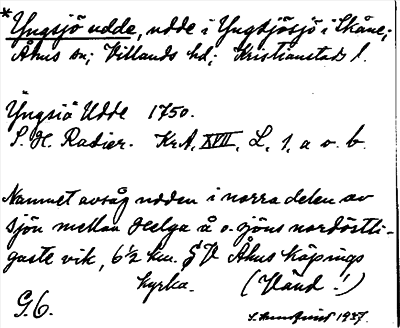 * Yngsjö udde, udde i Yngsjösjö i Skåne;
Åhus sn; Villands hd; Kristianstad l.
Yngsiö Udde 1750.
P. H. Radier. Kr.A. XVII, L, 1, a o. b.
Namnet avsåg udden i norra delen av
sjön mellan Helga å o. sjöns nordöstli-
gaste vik, 6½ km. SV Åhus köpings
kyrka. (Vänd!)
G.6. 1937.